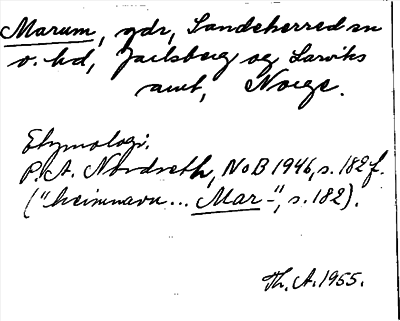 Marum, gdr, Sandeherred sn
o. hd, Jarlsberg og Larviks
amt, Norge.
Etymologi.
P. A. Nordseth, NoB 1946, s. 182 f.
("heimnavn... Mar-", s. 182).
Th. A. 1955.